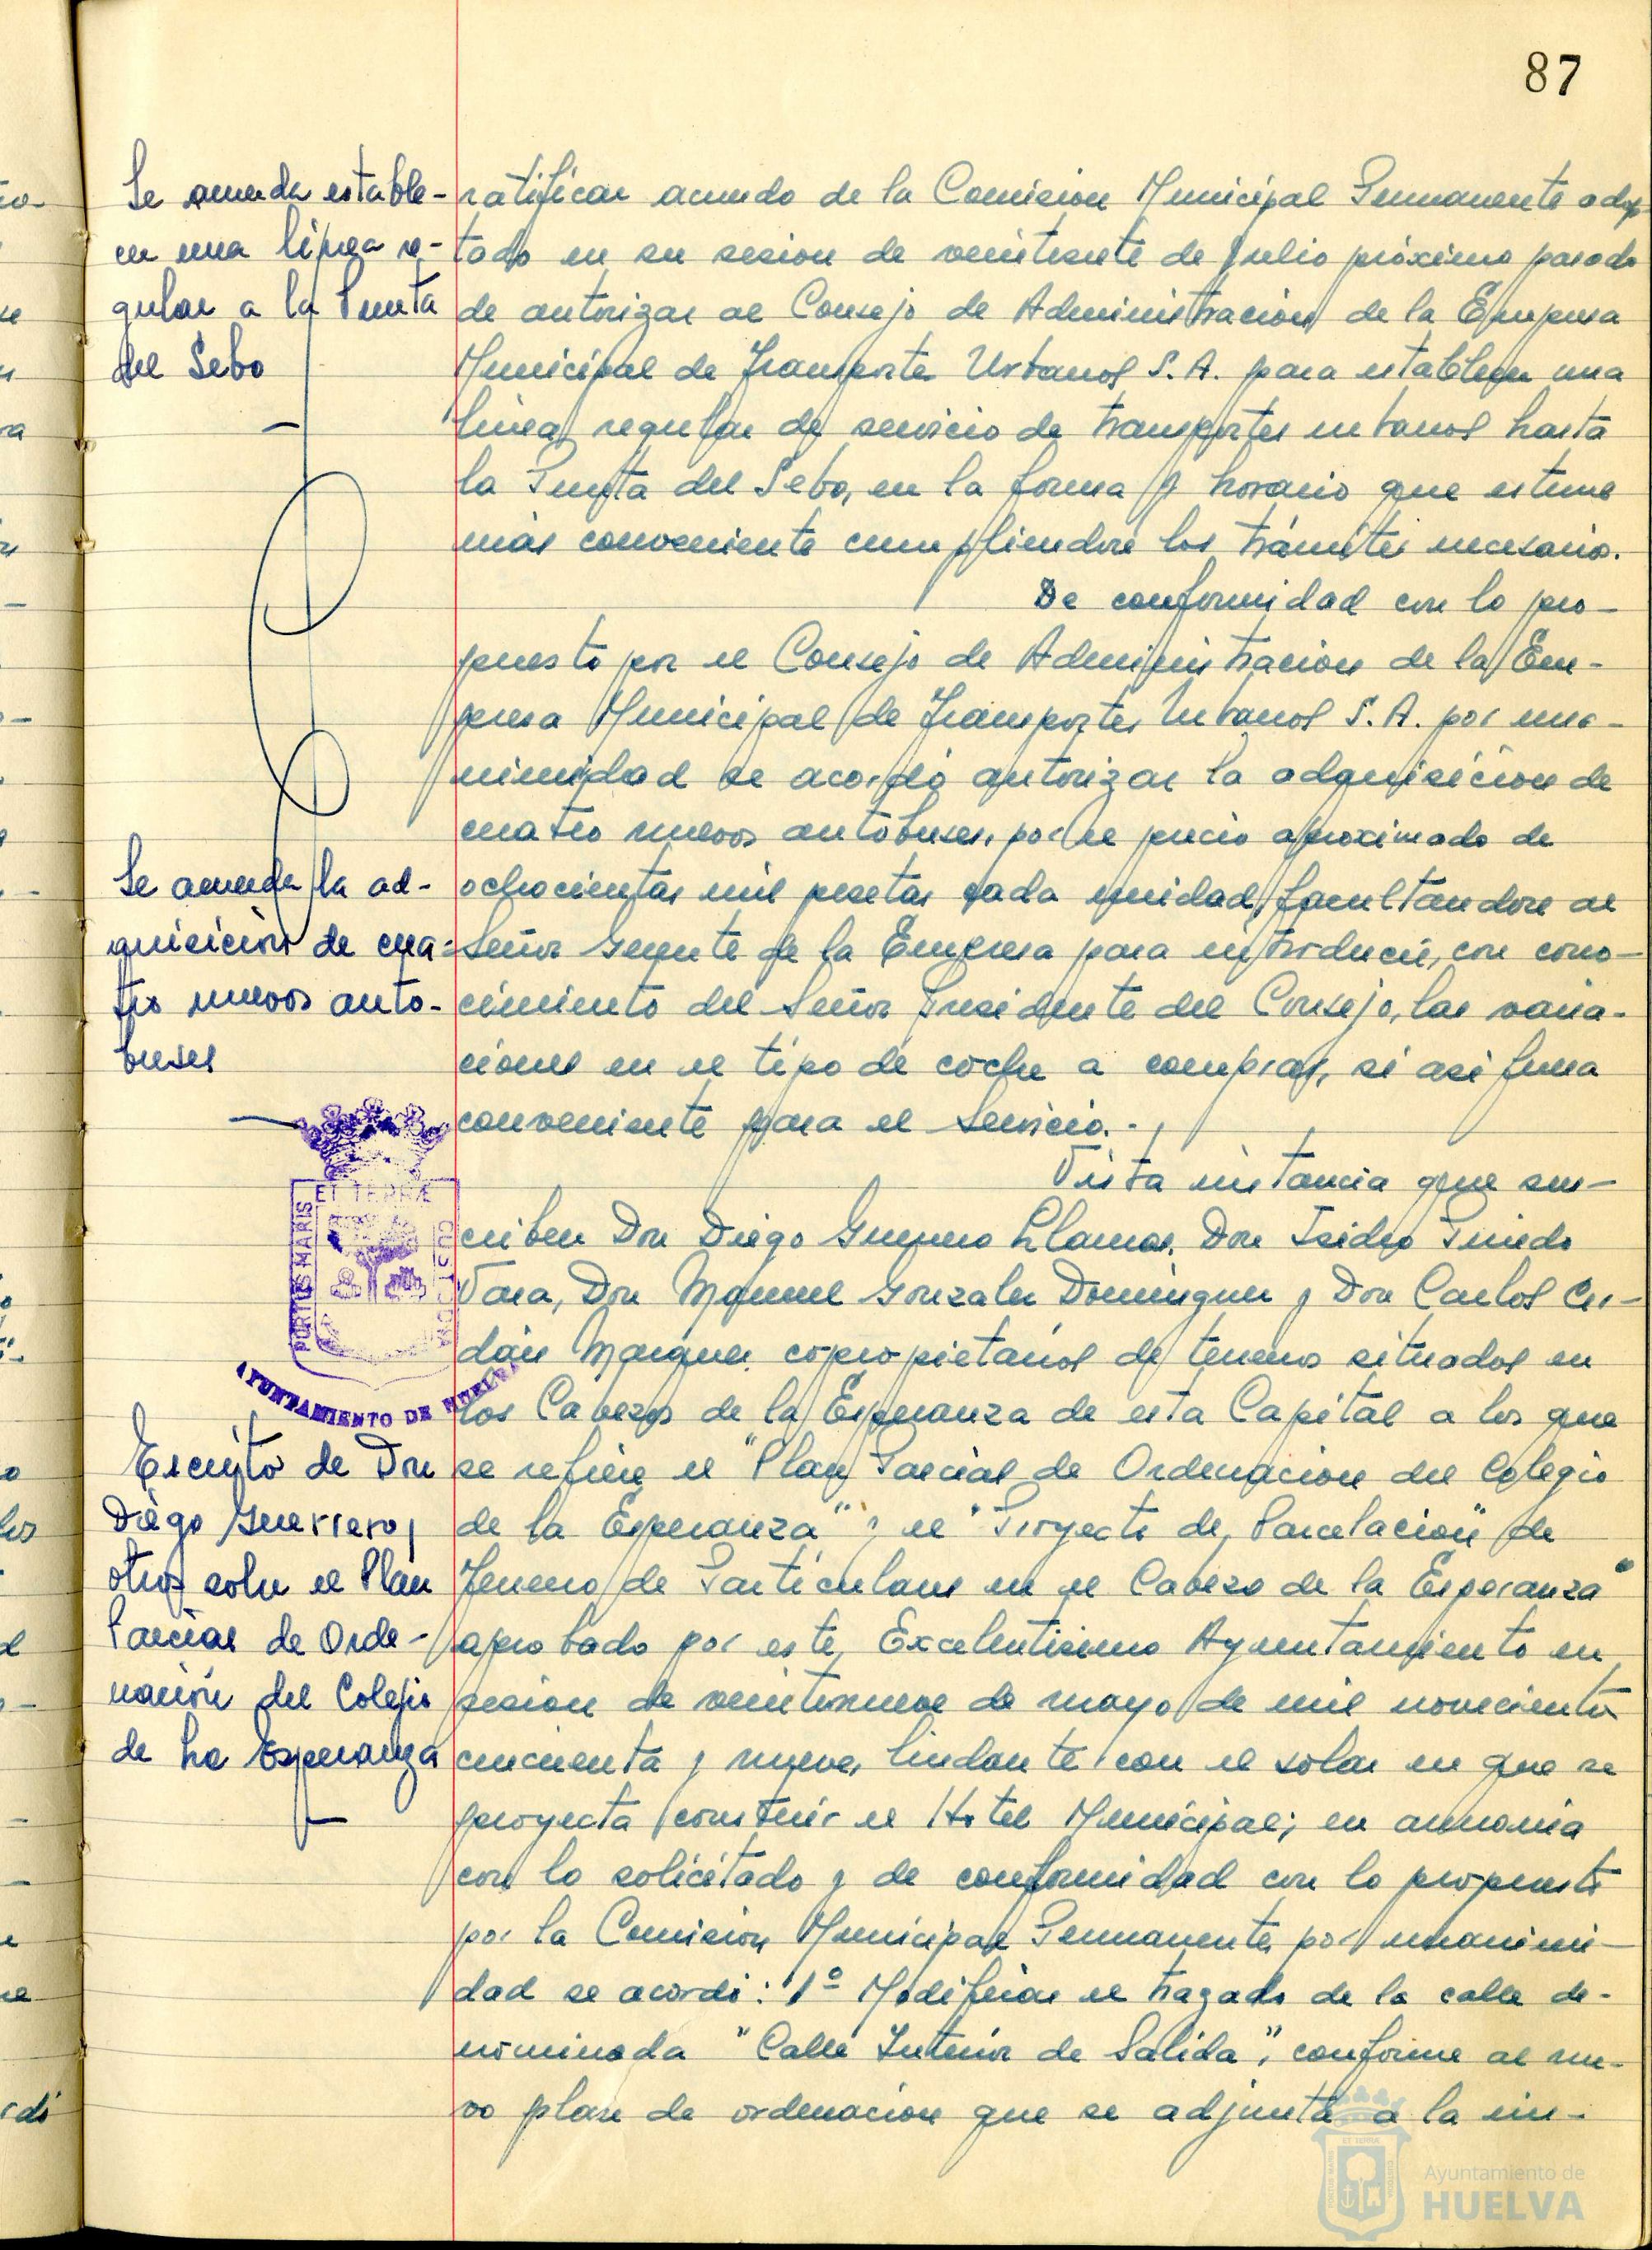 87
Se acuerda estable-
cer una línea re-
gular a la Punta
del Sebo
ratificar acuerdo de la Comision Municipal Permanente adop-
tado en su sesion de veintisiete de Julio próximo pasado
de autorizar al Consejo de Administracion de la Empresa
Municipal de Transportes Urbanos S.A. para establecer una
linea regular de servicio de transportes urbanos hasta
la Punta del Sebo, en la forma y horario que estime
más conveniente cumpliendose los trámites necesarios.
De conformidad con lo pro-
puesto por el Consejo de Administracion de la Em-
presa Municipal de Transportes Urbanos S.A. por una-
nimidad se acordó autorizar la adquisicion de
cuatro nuevos autobuses, por el precio aproximado de
Se acuerda la ad-
quisición de cua-
tro nuevos auto-
buses
ochocientas mil pesetas cada unidad, facultandose al
Señor Gerente de la Empresa para introducir, con cono-
cimiento del Señor Presidente del Consejo, las varia-
ciones en el tipo de coche a comprar, si asi fuera
conveniente para el Servicio.-
Vista instancia que sus-
criben Don Diego Guerrero Llamas, Don Isidro Pinedo
Vara, Don Manuel Gonzalez Dominguez y Don Carlos Cer-
dán Marquez, copropietarios de terrenos situados en
los Cabezos de la Esperanza de esta Capital a los que
PORTUS MARIS
ET TERRÆ
CUSTODIA
AYUNTAMIENTO DE HUELVA
Escrito de Don
Diego Guerrero y
otros sobre el Plan
Parcial de Orde-
nación del Colegio
de La Esperanza
se refiere el "Plan Parcial de Ordenacion del Colegio
de la Esperanza" y el "Proyecto de Parcelacion de
Terreno de Particulares en el Cabezo de la Esperanza"
aprobado por este Excelentisimo Ayuntamiento en
sesion de veintinueve de mayo de mil novecientos
cincuenta y nueve, lindante con el solar en que se
proyecta construir el Hotel Municipal; en armonia
con lo solicitado y de conformidad con lo propuesto
por la Comision Municipal Permanente, por unanimi-
dad se acordó: 1º Modificar el trazado de la calle de-
nominada "Calle Interior de Salida", conforme al nue-
vo plan de ordenacion que se adjunta a la ins-
Ayuntamiento de
HUELVA